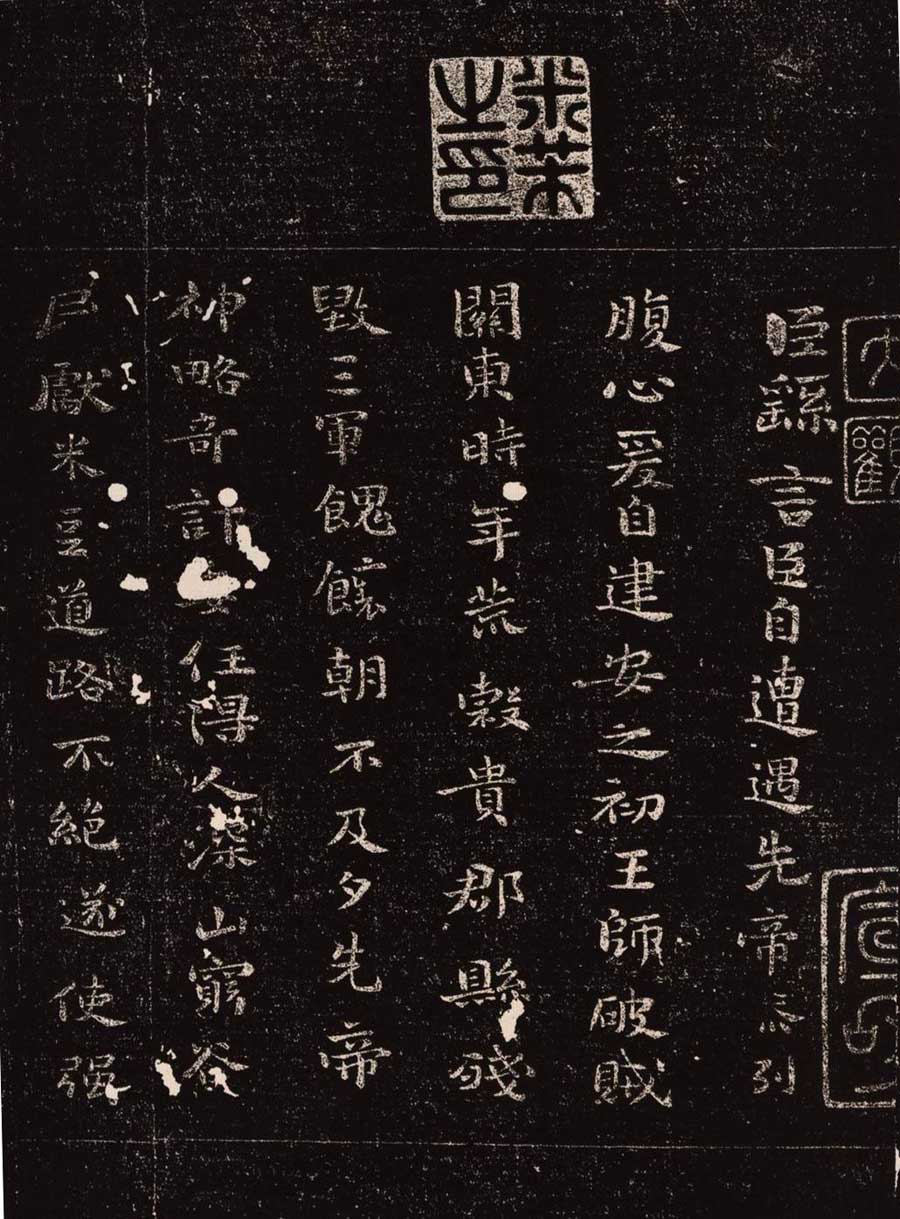 米芾之印
大觀
宣和
臣繇言臣自遭遇先帝忝列
腹心爰自建安之初王師破賊
關東時年荒穀貴郡縣殘
毀三軍餽饟朝不及夕先帝
神略奇計委任得人深山窮谷
民獻米豆道路不絕遂使强